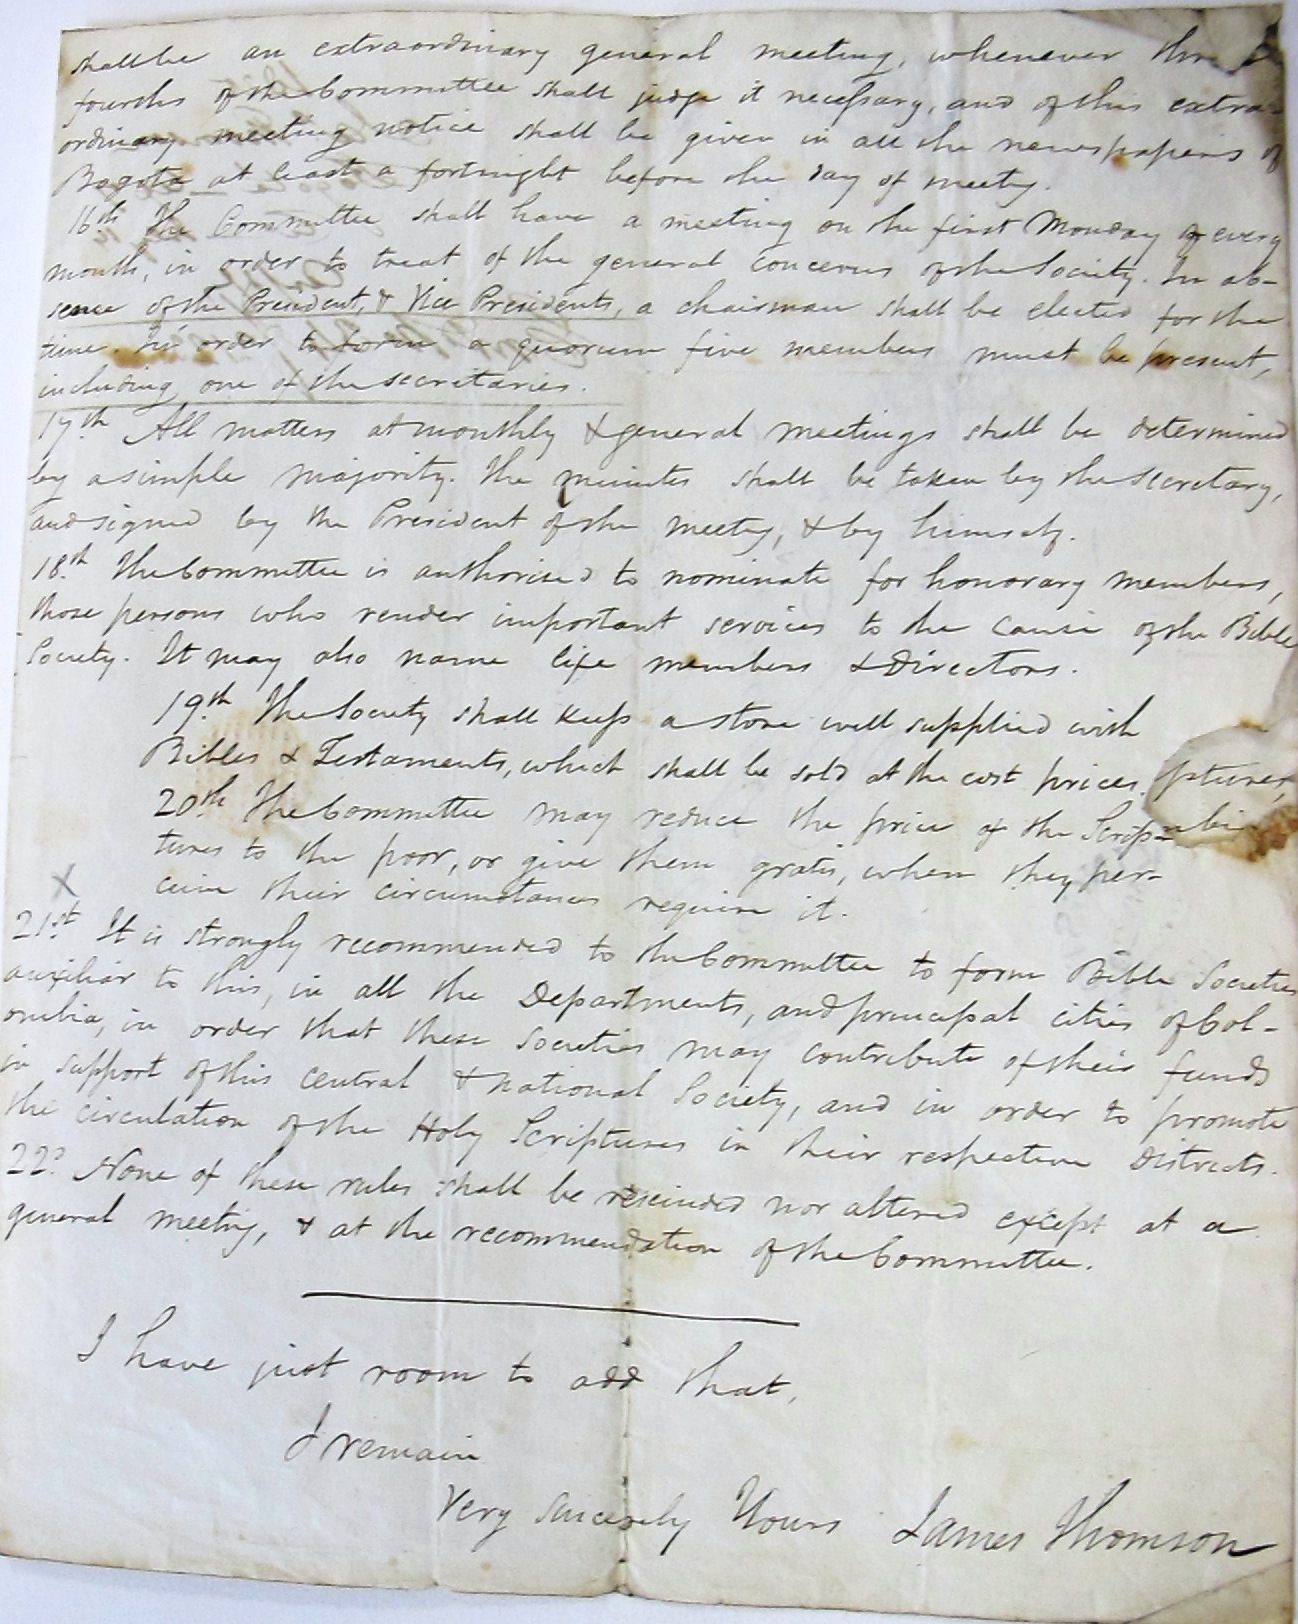 shall be an extraordinary general meeting, whenever three
fourths of the Committee shall judge it necessary, and of this extra-
ordinary meeting notice shall be given in all the newspapers of
Bogota at least a fortnight before the day of meeting.
16th. The Committee shall have a meeting on the first Monday of every
month, in order to treat of the general concerns of the Society. In ab-
sence of the President, & Vice Presidents, a chairman shall be elected for the
time. In order to form a quorum five members must be present,
including one of the secretaries.
17th All matters at monthly & general meetings shall be determined
by a simple majority. The minutes shall be taken by the Secretary,
and signed by the President of the meeting, & by himself.
18th. The Committee is authorised to nominate for honorary members,
those persons who render important services to the cause of the Bible
Society. It may also name life members & Directors.
19th. The Society shall keep a store well supplied with
Bibles & Testaments, which shall be sold at the cost prices.
20th The Committee may reduce the price of the Scrip-
tures to the poor, or give them gratis, when they per-
ceive their circumstances require it.
X
21st. It is strongly recommended to the Committee to form Bible Societies
auxiliar to this, in all the Departments, and principal cities of Col-
ombia, in order that these Societies may contribute of their funds
in support of this central & national Society, and in order to promote
the circulation of the Holy Scriptures in their respective Districts.
22d None of these rules shall be rescinded nor altered except at a
general meeting, & at the recommendation of the Committee.
I have just room to add that,
I remain
Very Sincerely Yours James Thomson